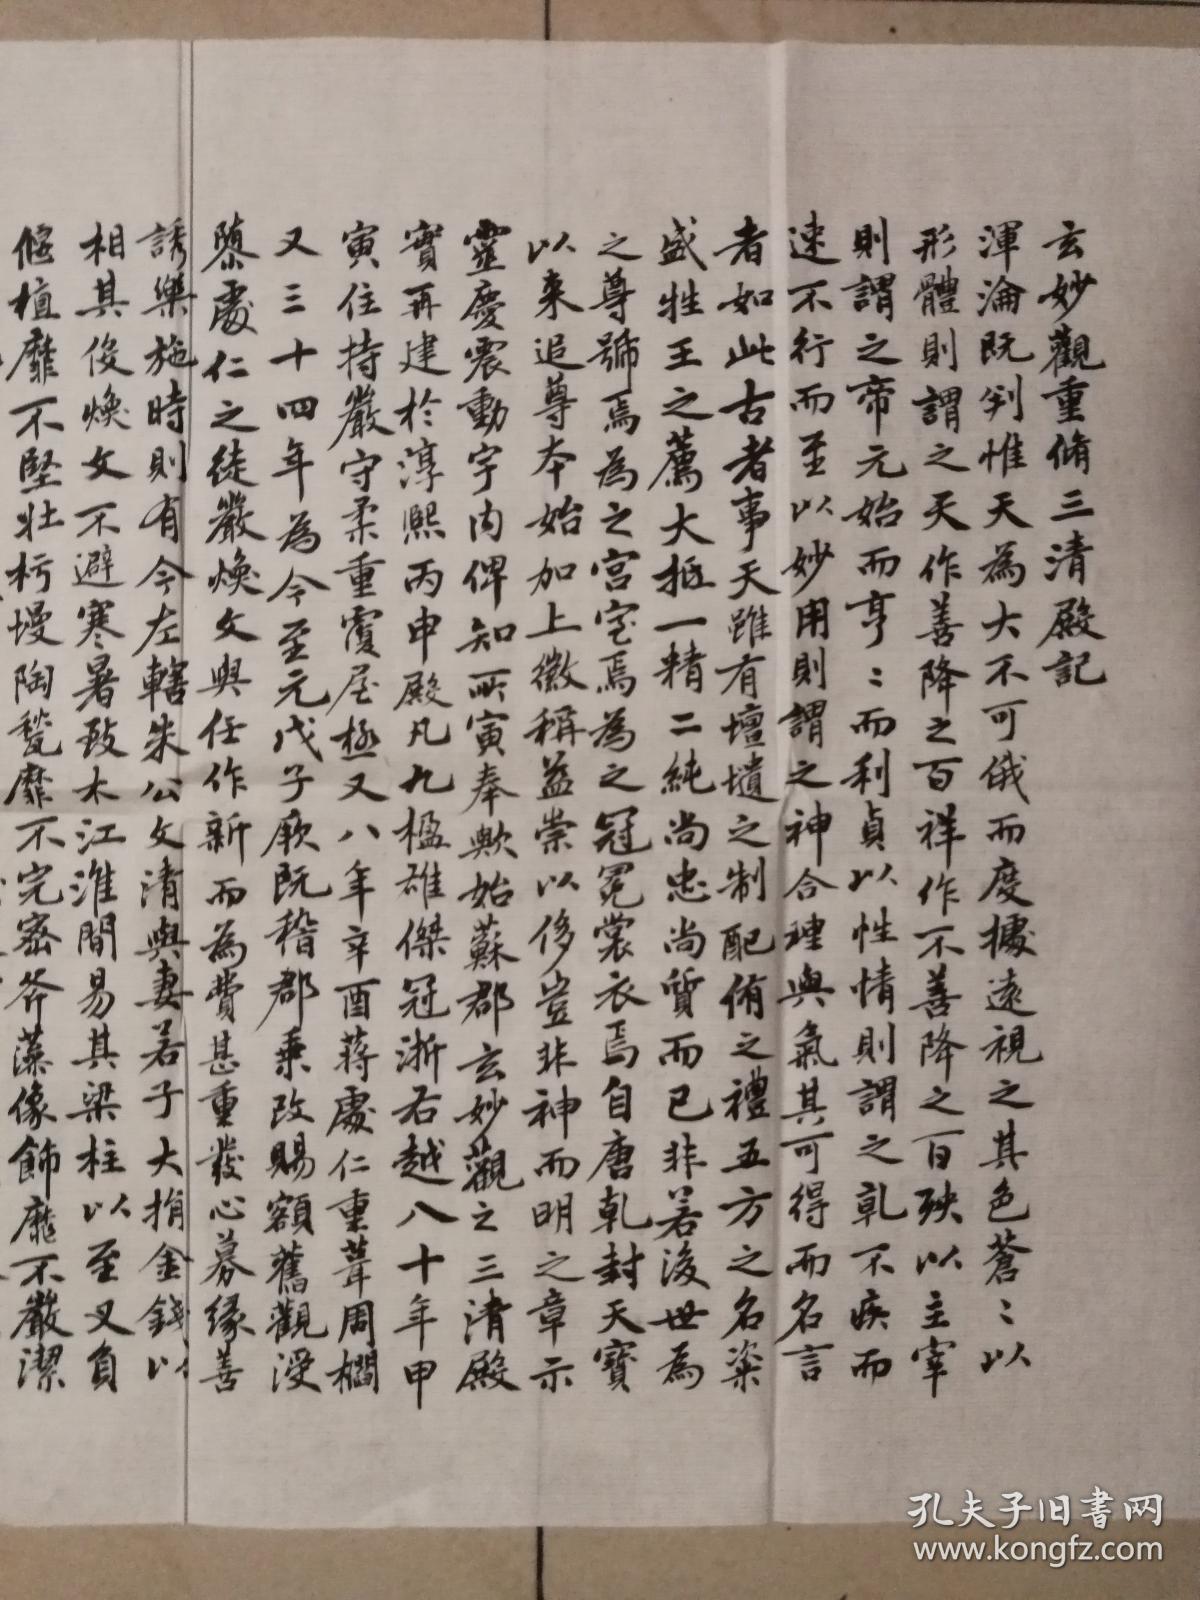 玄妙觀重脩三清殿記
渾淪既判惟天為大不可俄而度據遠視之其色蒼〻以
形體則謂之天作善降之百祥作不善降之百殃以主宰
則謂之帝元始而亨〻而利貞以性情則謂之乹不疾而
速不行而至以妙用則謂之神合理與氣其可得而名言
者如此古者事天雖有壇壝之制配侑之禮五方之名粢
盛牲王之薦大抵一精二純尚忠尚質而已非若後世為
之尊號焉為之宮室焉為之冠冕裳衣焉自唐乹封天寶
以来追尊本始加上徽稱益崇以侈豈非神而明之章示
靈慶震動宇内俾知所寅奉歟始蘇郡玄妙觀之三清殿
實再建於淳熙丙申殿凡九楹雄傑冠浙右越八十年甲
寅住持嚴守柔重覆屋極又八年辛酉蔣處仁重葺周欄
又三十四年為今至元戊子厥既稽郡乗改賜額舊觀漫
隳處仁之徒嚴煥文與任作新而為費甚重發心募緣善
誘樂施時則有今左轄朱公文清與妻若子大捐金錢以
相其役煥文不避寒暑致木江淮間易其梁柱以至叉負
偃植靡不堅壯杇墁陶甃靡不完密斧藻像飾靡不嚴潔
孔夫子旧书网
www.kongfz.com